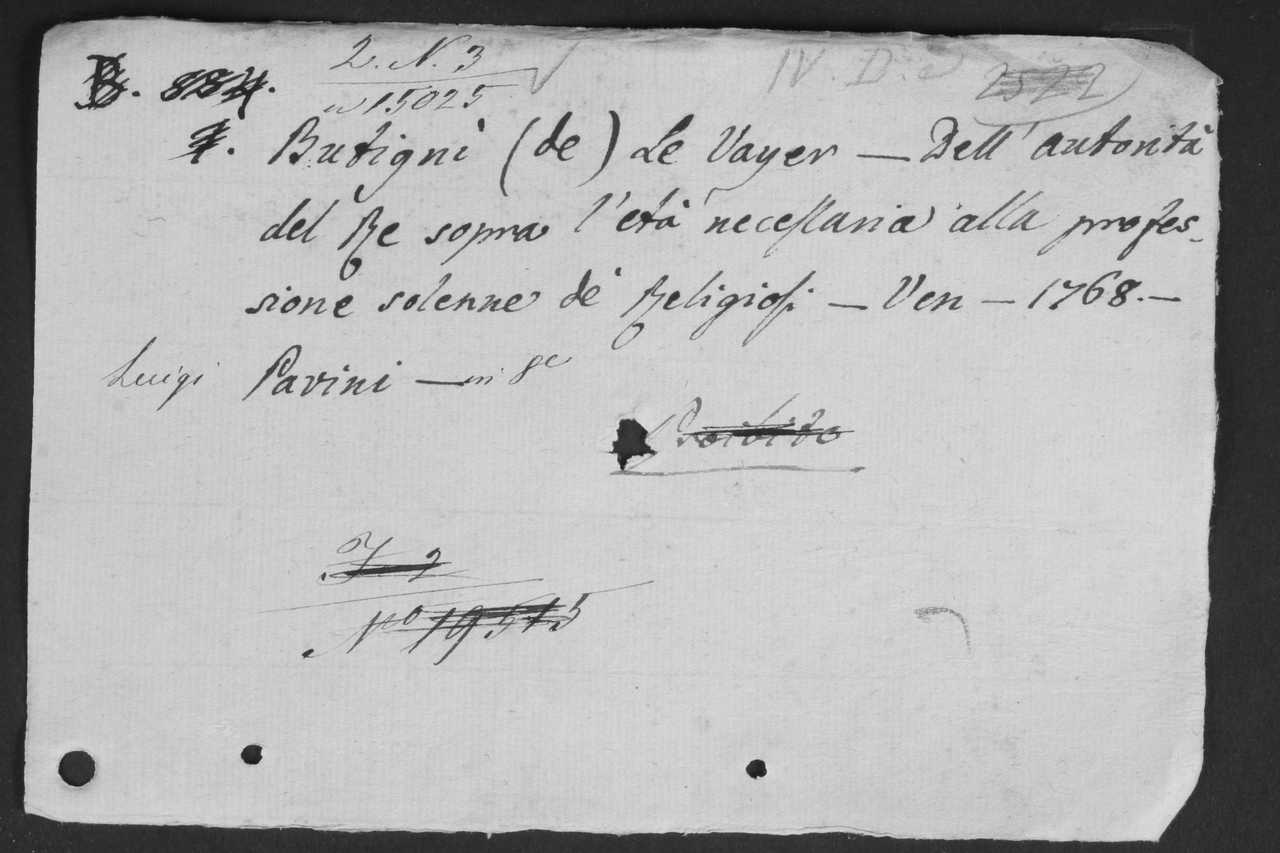 2. N. 3
B. 884. a 15025 IV. D. a 2522
1. Butigni (de) Le Vayer — Dell' autorità
del Re sopra l'età necessaria alla profes-
sione solenne de' Religiosi — Ven — 1768. —
Luigi Pavini — in 8e
Proibido
J 2
No 19515